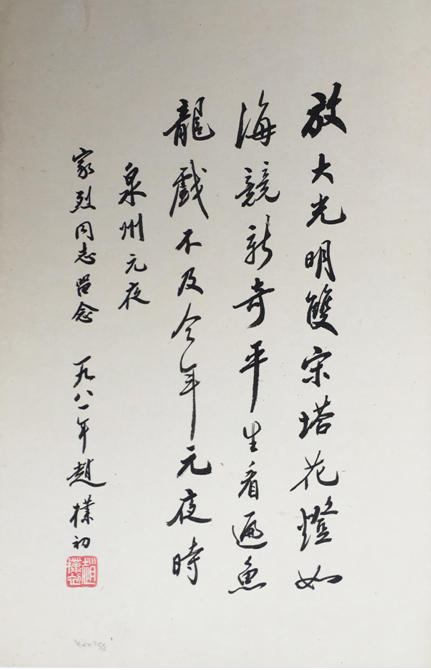 放大光明雙宋塔花燈如
海競新奇平生看遍魚
龍戲不及今年元夜時
泉州元夜
家烈同志留念
一九八一年趙樸初
趙樸初